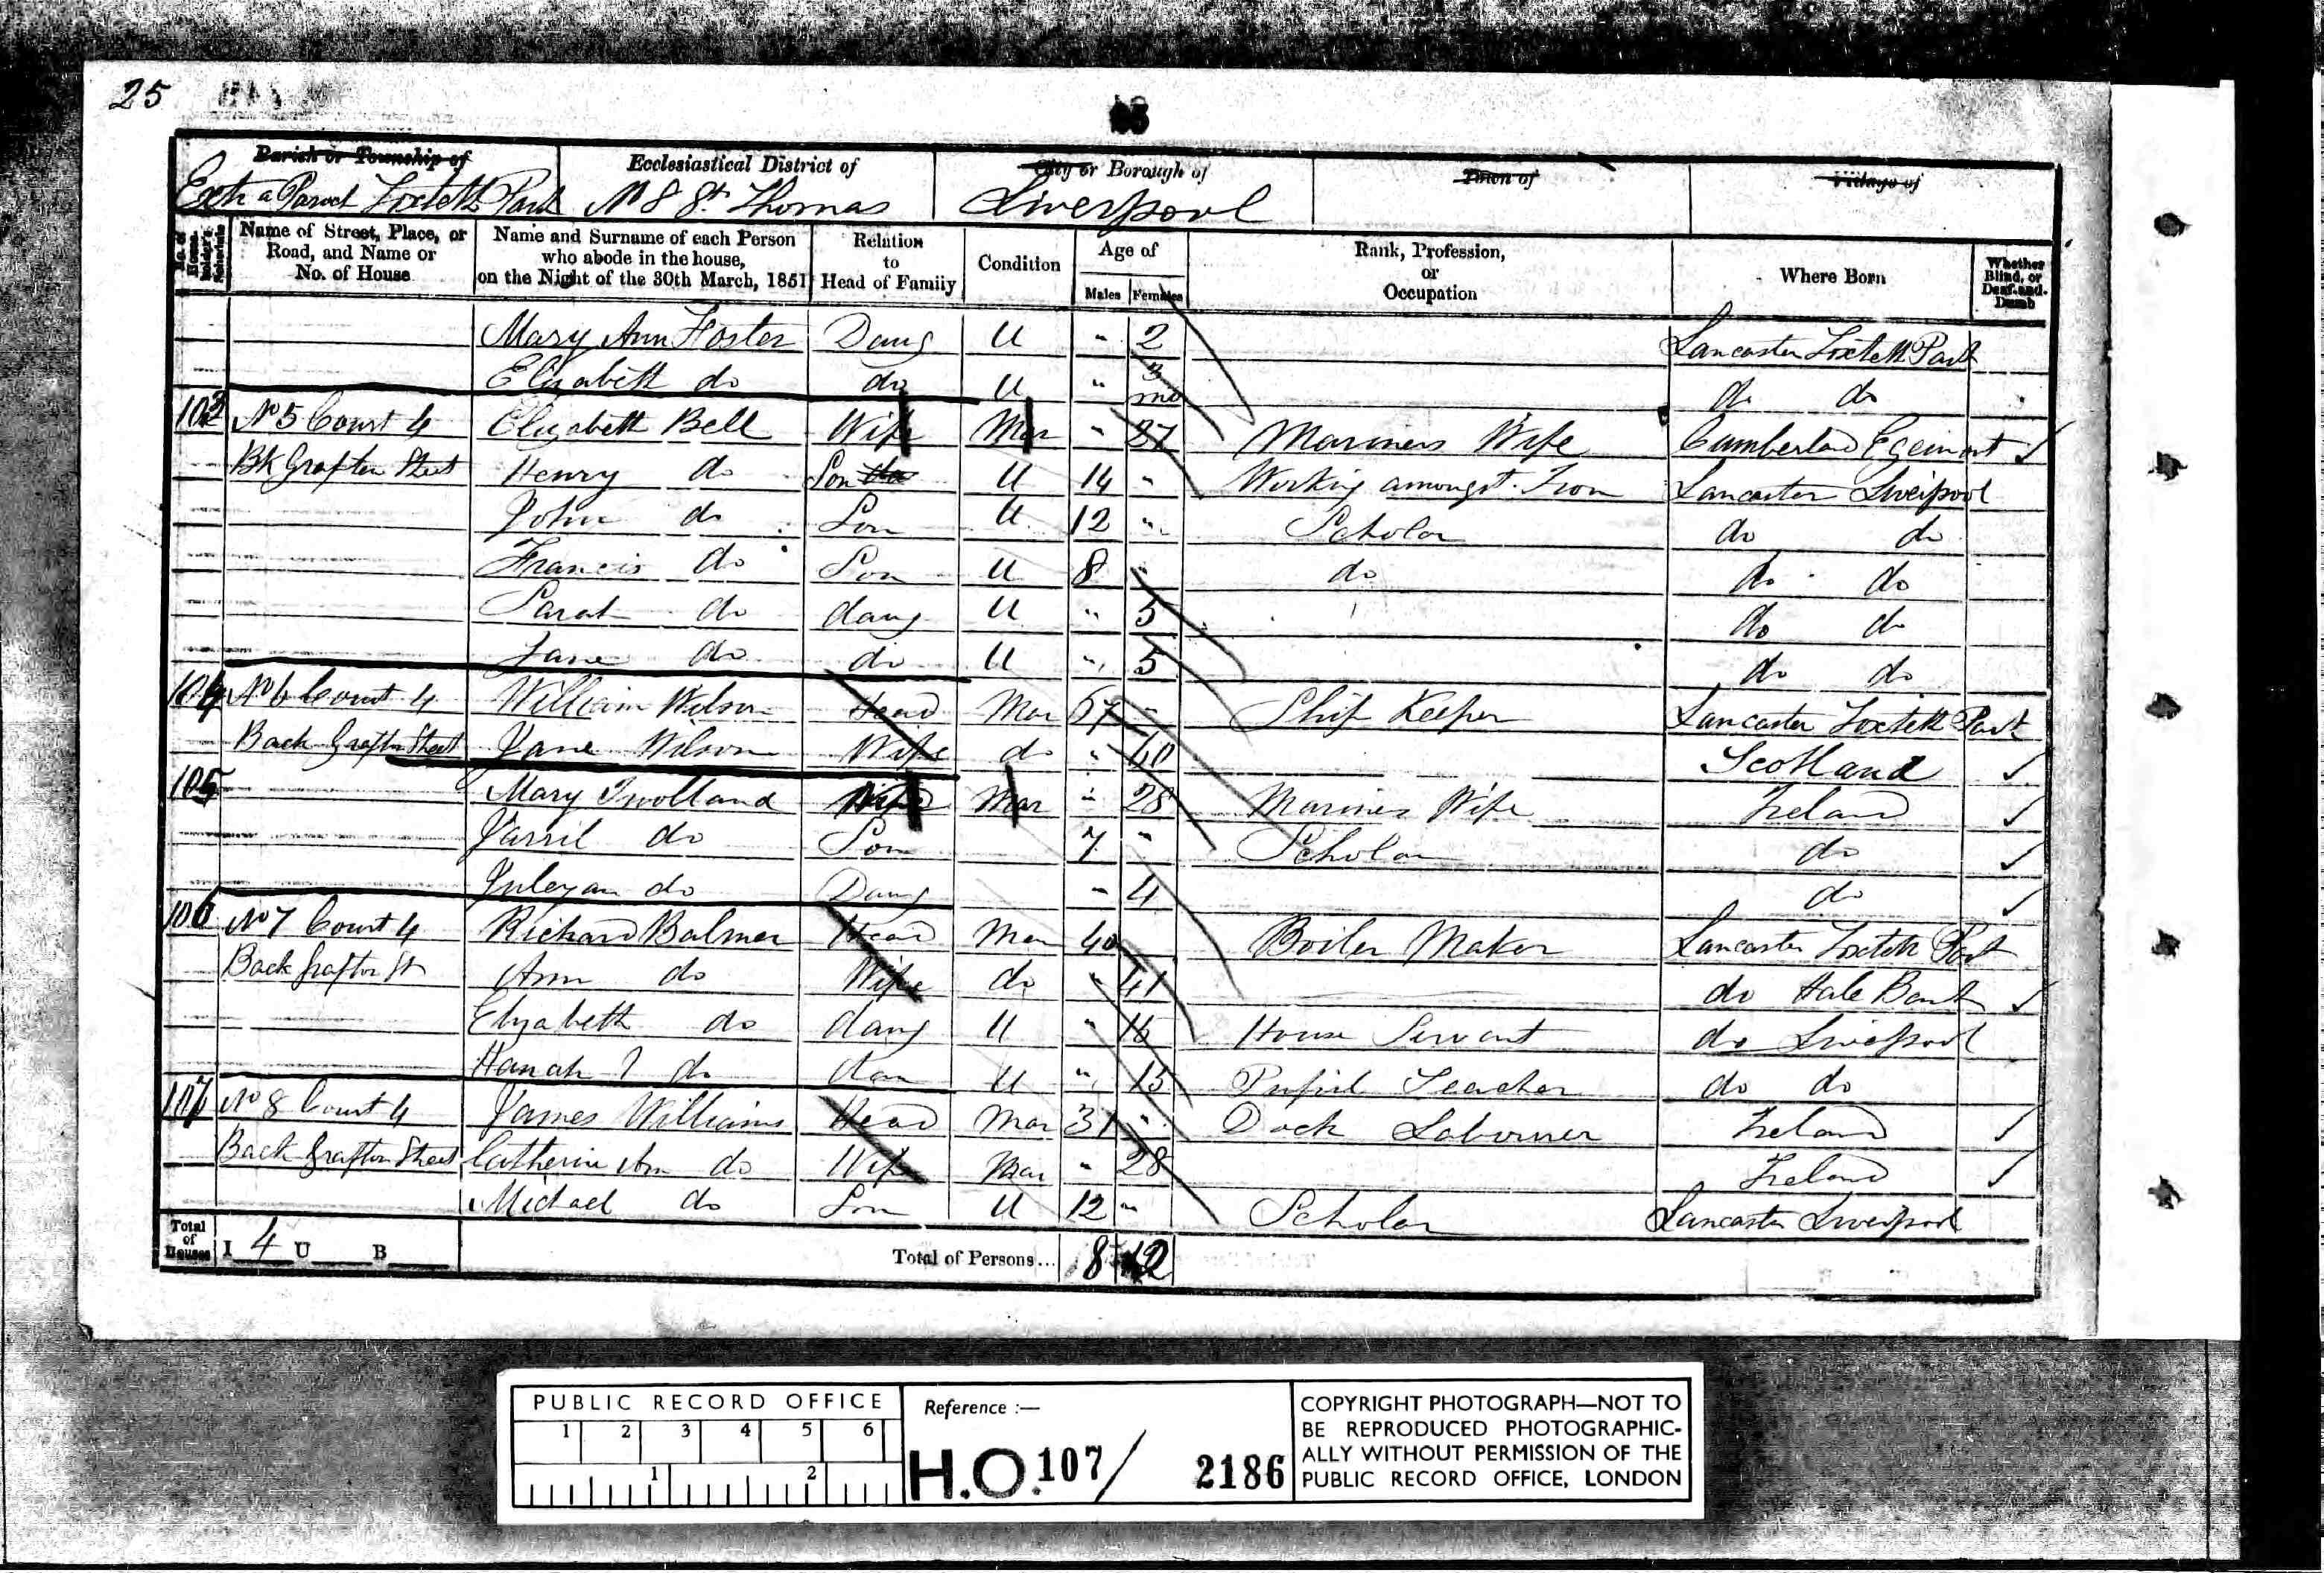 25
Parish or Township of
Ecclesiastical District of
City or Borough of
Town of
Village of
Toxteth Park
No 8 St Thomas
Liverpool
No. of House-holder's Schedule
Name of Street, Place, or Road, and Name or No. of House
Name and Surname of each Person who abode in the house, on the Night of the 30th March, 1851
Relation to Head of Family
Condition
Age of
Males Females
Rank, Profession, or Occupation
Where Born
Whether Blind, or Deaf-and-Dumb
Mary Ann Foster Daug U " 2 Lancaster Toxteth Park
Elizabeth do do U " 3 mo do do
103 No 5 Court 4 Elizabeth Bell Wife Mar " 37 Mariners Wife Cumberland Egemont
Bk Grafton Street Henry do Son U 14 " Working amongst Iron Lancaster Liverpool
John do Son U 12 " Scholar do do
Francis do Son U 8 " do do do
Sarah do daug U " 5 do do
Jane do do U " 5 do do
104 No 6 Court 4 William Wilson Head Mar 57 " Ship Keeper Lancaster Toxteth Park
Back Grafton Street Jane Wilson Wife do " 60 Scotland
105 Mary Wife Mar " 28 Mariner Wife Ireland
do Son 7 " Scholar do
do Daug " 4 do
106 No 7 Court 4 Richard Balmer Head Mar 40 Boiler Maker Lancaster Toxteth Park
Back Grafton St Ann do Wife do " 41 do Hale Bank
Elizabeth do daug U " 16 House Servant do Liverpool
Hanah do dau U " 13 Pupil Teacher do do
107 No 8 Court 4 James Williams Head Mar 31 " Dock Labourer Ireland
Back Grafton Street Catherine Ann do Wife Mar " 28 Ireland
Michael do Son U 12 " Scholar Lancaster Liverpool
Total of Houses I 4 U B Total of Persons... 8 12
PUBLIC RECORD OFFICE
1 2 3 4 5 6
1 2
Reference :—
H.O. 107/ 2186
COPYRIGHT PHOTOGRAPH—NOT TO
BE REPRODUCED PHOTOGRAPHIC-
ALLY WITHOUT PERMISSION OF THE
PUBLIC RECORD OFFICE, LONDON